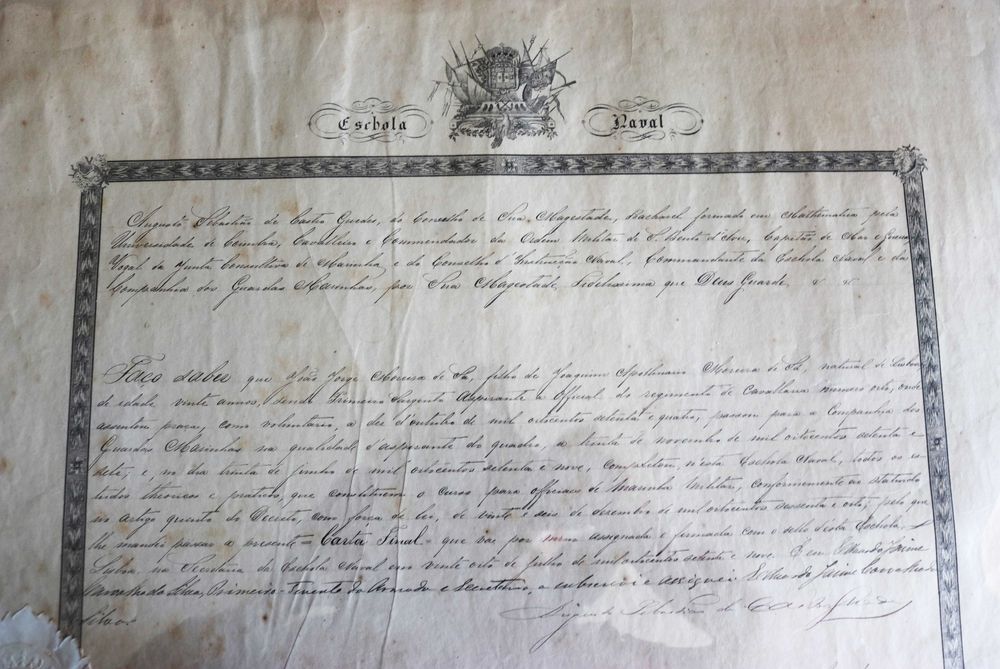 Eschola Naval
Augusto Sebastião de Castro Guedes, do Conselho de Sua Magestade, Bacharel formado em Mathematica pela
Universidade de Coimbra, Cavalleiro e Commendador da Ordem Militar de S. Bento d'Aviz, Capitão de Mar e Guerra
Vogal da Junta Consultiva de Marinha, e do Conselho d'Instrucção Naval, Commandante da Eschola Naval e da
Companhia dos Guardas Marinhas, por Sua Magestade Fidelissima que Deus Guarde, &. &.
Faço saber que João Jorge Moreira de Sá, filho de Joaquim Moreira de Sá, natural de Lisboa
de edade vinte annos, sendo Primeiro Sargento Aspirante a Official do regimento de Cavallaria numero oito, onde
assentou praça, como voluntario, a dez d'outubro de mil oitocentos setenta e quatro, passou para a Companhia dos
Guardas Marinhas na qualidade d'aspirante do quadro, a trinta de novembro de mil oitocentos setenta e
sete, e, no dia trinta de junho de mil oitocentos setenta e nove, completou, n'esta Eschola Naval, todos os es-
tudos theoricos e praticos, que constituem o Curso para officiaes de Marinha Militar, conformemente ao estatuido
no artigo quinto do Decreto, com força de lei, de vinte e seis de dezembro de mil oitocentos sessenta e oito, pelo que
lhe mandei passar a presente = Carta Final = que vae por mim assignada e firmada com o sello d'esta Eschola.
Lisboa na Secretaria da Eschola Naval em vinte oito de julho de mil oitocentos setenta e nove. E eu Eduardo Jaime
Carvalho da Silva, Primeiro-Tenente da Armada e Secretario, a subscrevi e assignei Eduardo Jaime Carvalho da
Silva.
Augusto Sebastião de Castro Guedes